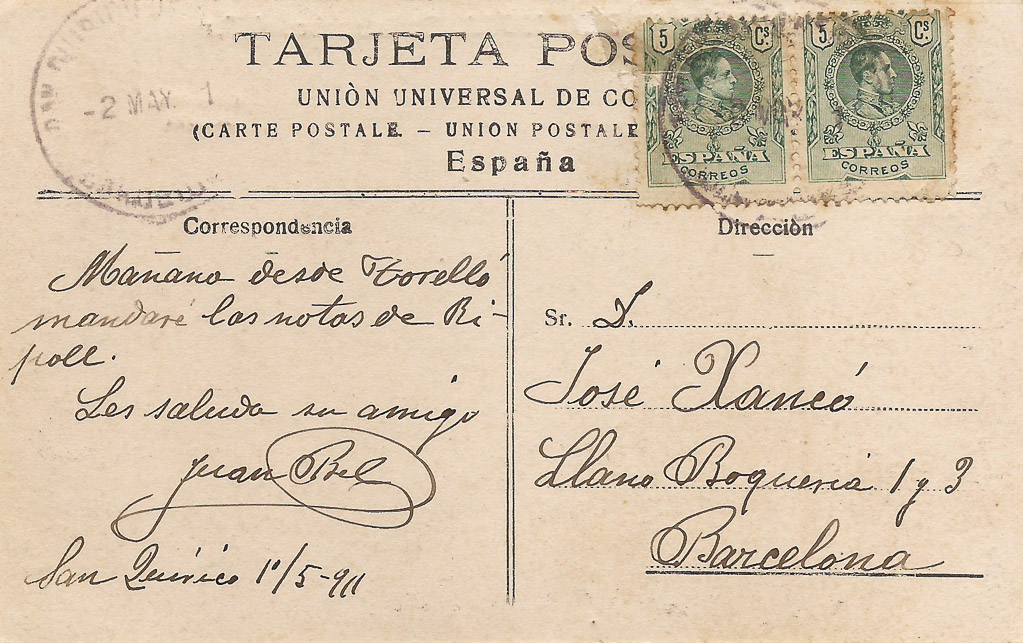 TARJETA POS
UNIÒN UNIVERSAL DE CO
(CARTE POSTALE. – UNION POSTALE
España
-2 MAY. 1
5 Cs.
ESPAÑA
CORREOS
5 Cs.
ESPAÑA
CORREOS
MAY
Correspondencia
Mañana desde Torelló
mandaré las notas de Ri-
poll.
Les saluda su amigo
Juan Bel
San Quirico 1º/5-911
Dirección
Sr. D.
José Xancó
Llano Boqueria 1 y 3
Barcelona